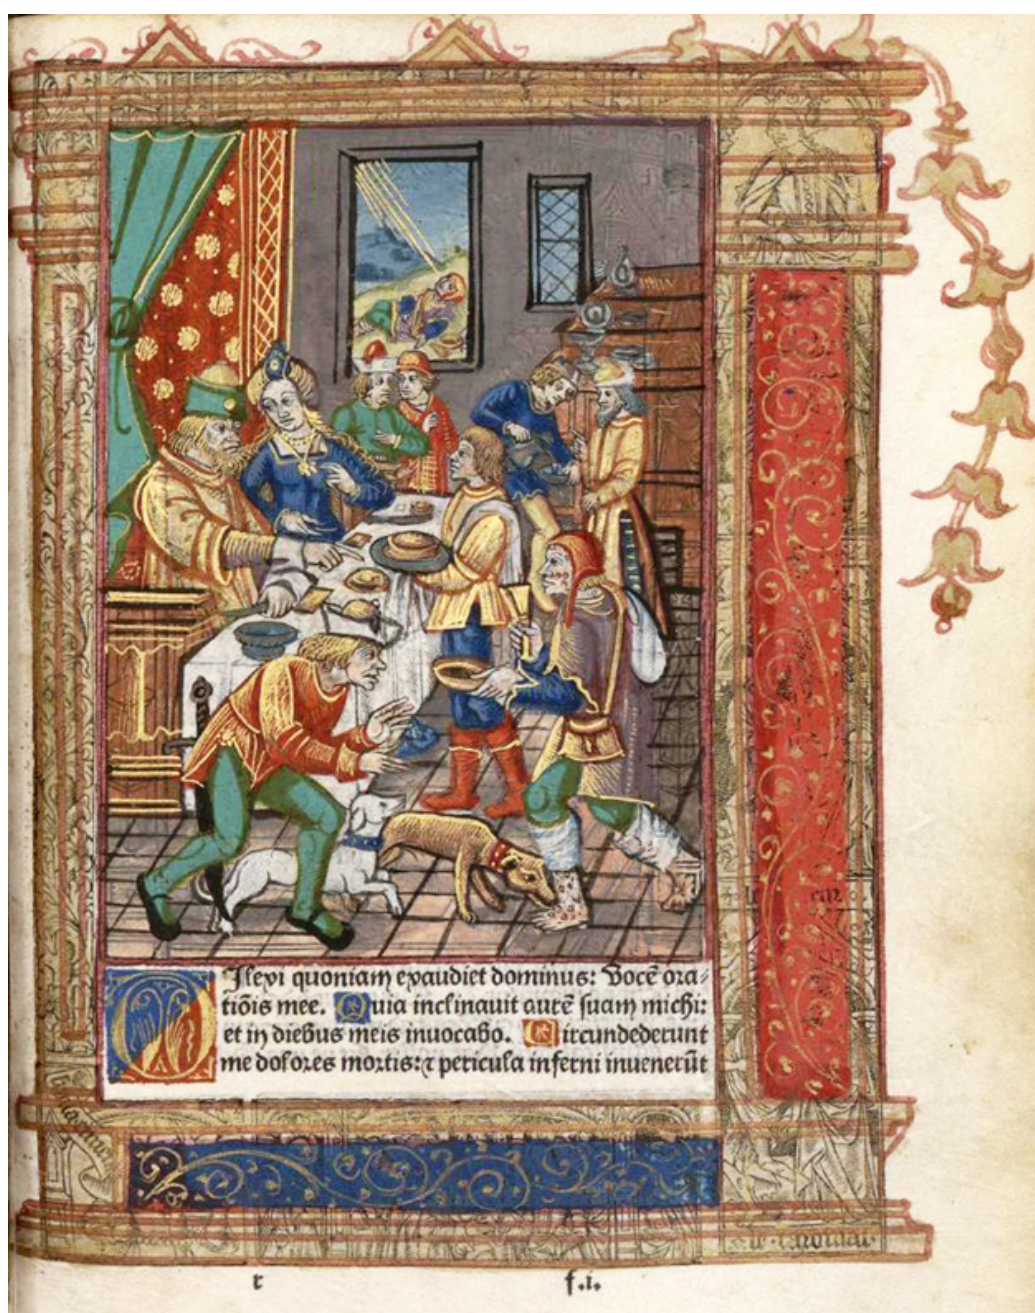 Dilexi quoniam exaudiet dominus: Vocē ora⸗
tiōis mee. Quia inclinauit aurē suam michi:
et in diebus meis inuocabo. Circundederunt
me dolores mortis: ⁊ pericula inferni inuenerūt
r f.i.